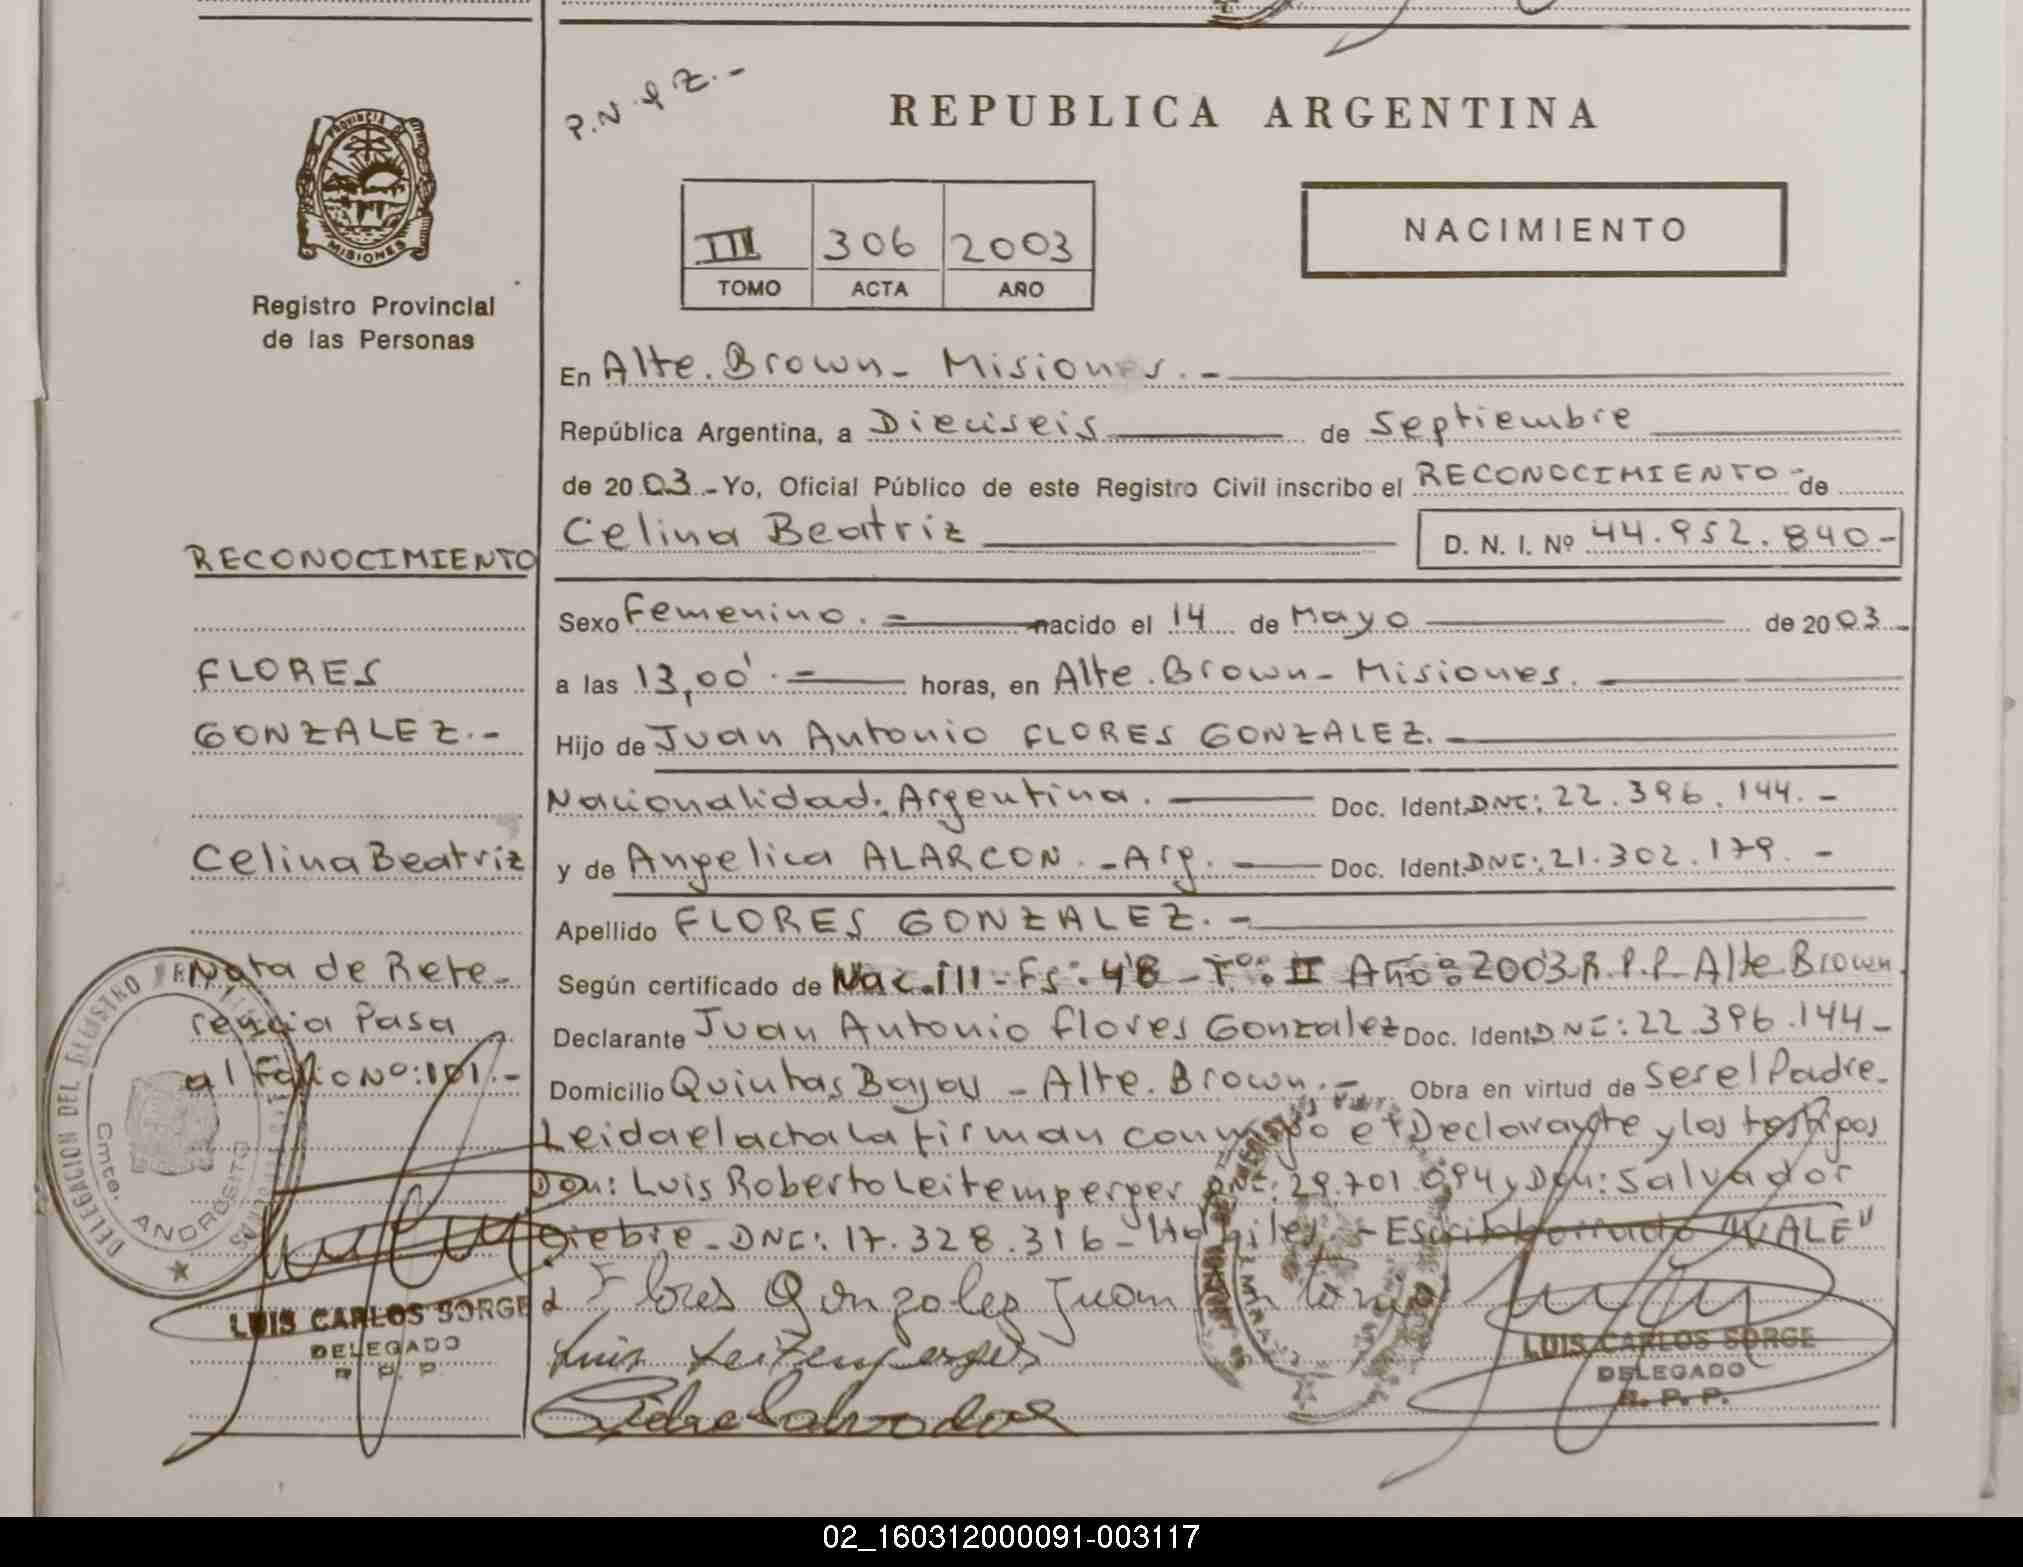 P.N. y Z.-
REPUBLICA ARGENTINA
PROVINCIA DE
MISIONES
Registro Provincial
de las Personas
III 306 2003
TOMO ACTA AÑO
NACIMIENTO
En Alte. Brown - Misiones. -
República Argentina, a Dieciseis de Septiembre
de 2003.- Yo, Oficial Público de este Registro Civil inscribo el RECONOCIMIENTO - de
Celina Beatriz D. N. I. Nº 44.952.840-
Sexo Femenino. - nacido el 14 de Mayo de 2003.-
a las 13,00' .- horas, en Alte. Brown - Misiones. -
Hijo de Juan Antonio FLORES GONZALEZ. -
Nacionalidad: Argentina. - Doc. Ident. DNI: 22.396.144. -
y de Angelica ALARCON. - Arg. - Doc. Ident. DNI: 21.302.179. -
Apellido FLORES GONZALEZ. -
Según certificado de Nac. 111 - Fs: 48 - Tº: II Año: 2003 R.P.P. Alte Brown.
Declarante Juan Antonio Flores Gonzalez Doc. Ident. DNI: 22.396.144 -
Domicilio Quintas Bajou - Alte. Brown. - Obra en virtud de ser el Padre. -
Leida el acta la firman conmigo el Declarante y los testigos
Don: Luis Roberto Leitemperger DNI: 29.701.094 y Don: Salvador
Giebre - DNI: 17.328.316 - Habiles - Escrito borrado "VALE"
Flores Gonzales Juan Antonio
Luis Leitemperger
LUIS CARLOS SORGE
DELEGADO
R. P. P.
RECONOCIMIENTO
FLORES
GONZALEZ. -
Celina Beatriz
Nota de Refe-
rencia Pasa
al Folio Nº: 101. -
DELEGACION DEL REGISTRO
Cmte. ANDRESITO
LUIS CARLOS SORGE
DELEGADO
R. P. P.
02_160312000091-003117